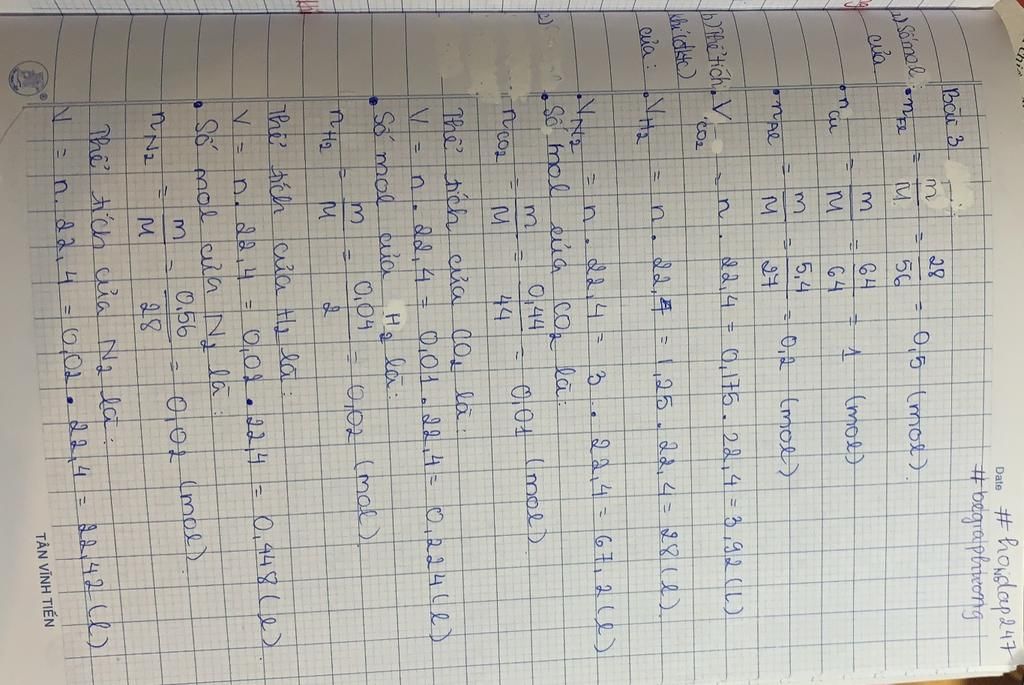 Date
#hoidap247
#begiaphuong
Bài 3
a) Số mol của
• nFe = m/M = 28/56 = 0,5 (mol).
• nCu = m/M = 64/64 = 1 (mol)
• nAl = m/M = 5,4/27 = 0,2 (mol)
b) Thể tích khí (đktc) của :
• VCO2 = n . 22,4 = 0,175 . 22,4 = 3,92 (l)
• VH2 = n . 22,4 = 1,25 . 22,4 = 28 (l).
• VN2 = n . 22,4 = 3 . 22,4 = 67,2 (l)
c)
• Số mol của CO2 là:
nCO2 = m/M = 0,44/44 = 0,01 (mol).
Thể tích của CO2 là:
V = n . 22,4 = 0,01 . 22,4 = 0,224 (l)
• Số mol của H2 là:
nH2 = m/M = 0,04/2 = 0,02 (mol).
Thể tích của H2 là:
V = n . 22,4 = 0,02 . 22,4 = 0,448 (l)
• Số mol của N2 là:
nN2 = m/M = 0,56/28 = 0,02 (mol).
Thể tích của N2 là:
V = n . 22,4 = 0,02 . 22,4 = 22,42 (l)
TÂN VĨNH TIẾN